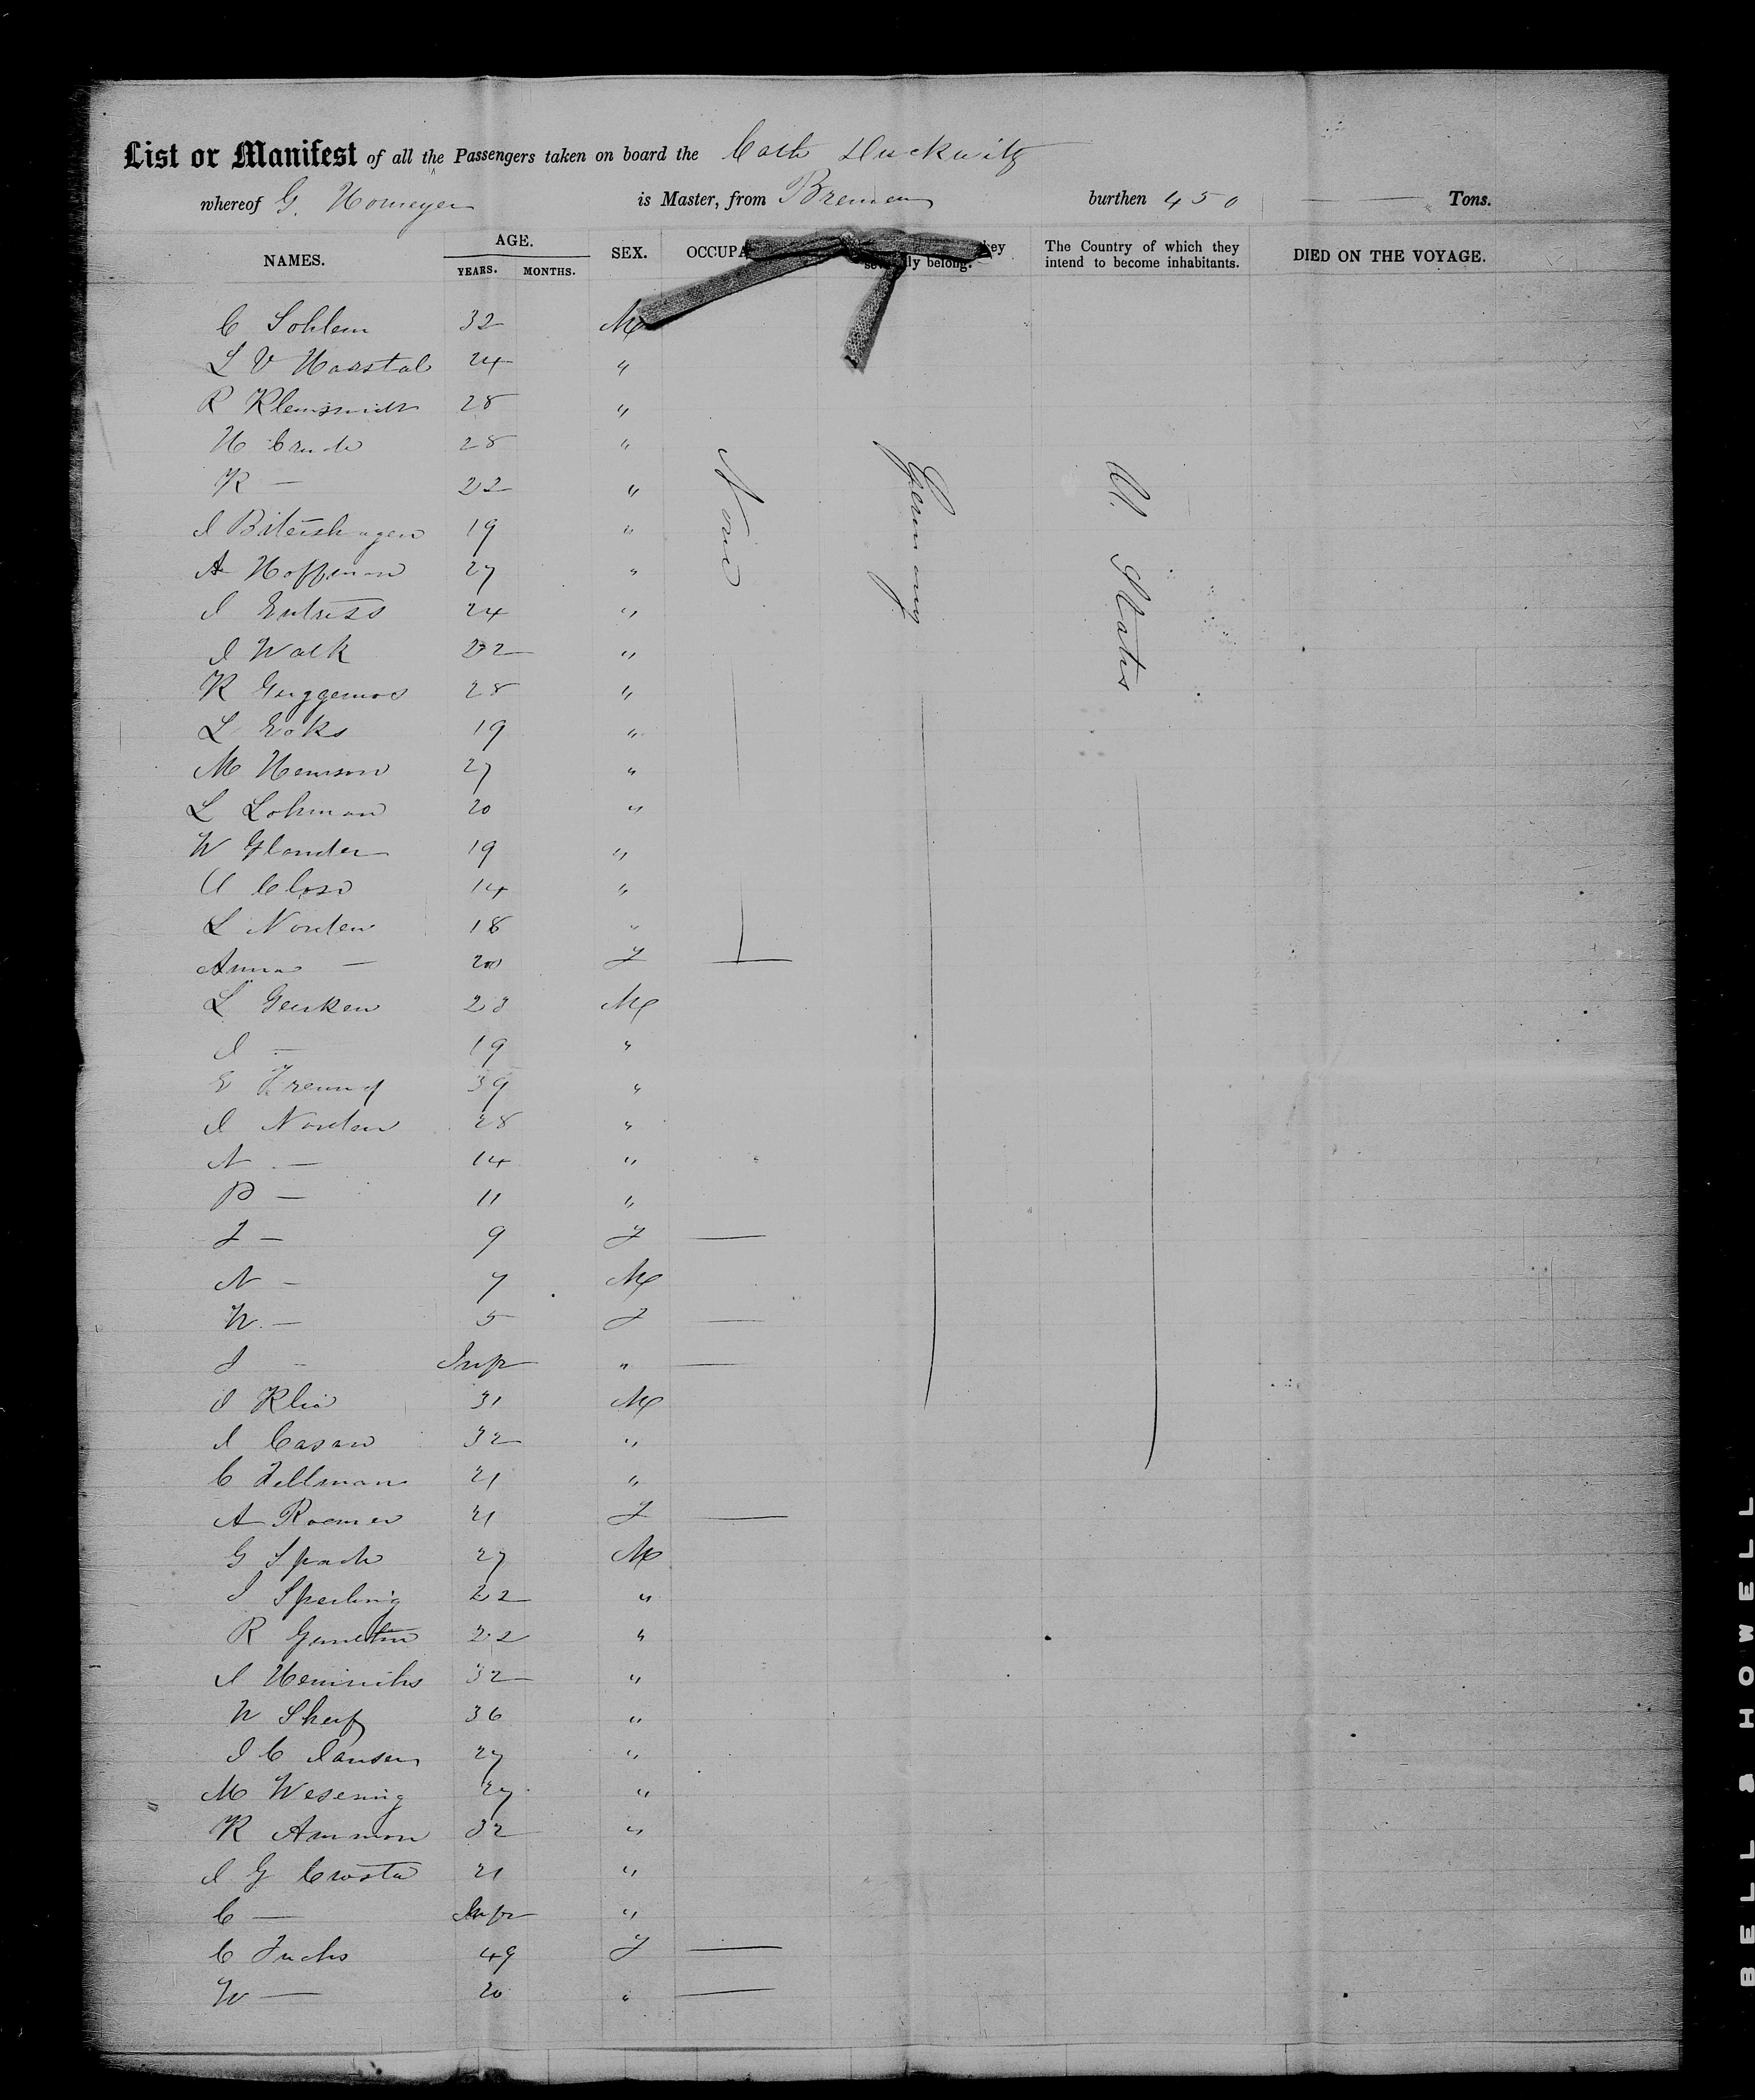 List or Manifest of all the Passengers taken on board the Cath Duckwitz
whereof G. Homeyer is Master, from Bremen burthen 450 Tons.
NAMES. AGE. YEARS. MONTHS. SEX. OCCUPA ly belong. The Country of which they intend to become inhabitants. DIED ON THE VOYAGE.
C Sohlem 32 M
L V Harstal 24 "
R Kleinsmidt 28 "
H 28 "
K — 22 "
None
Germany
U. States
I 19 "
A Hoffman 27 "
I Entress 24 "
I Walk 22 "
K Guggemos 28 "
L Eoks 19 "
M Hemson 27 "
L Lohman 20 "
W Glander 19 "
U Close 14 "
L Norden 18 "
Anna — 20 F
L Geerken 23 M
I — 19 "
E Freund 39 "
I Norden 28 "
N — 14 "
P — 11 "
F — 9 F —
N — 7 M
W. — 5 F —
I — Inft " —
I Klie 31 M
I Casan 32 "
C Fellman 21 "
A Roemer 21 F —
G Spade 27 M
I Sperling 22 "
R 22 "
I Heinrichs 32 "
W Sherf 36 "
I C Jansen 27 "
M Wesening 27 "
K Ammon 32 "
I G Crosta 21 "
C — Inft "
C Fuchs 49 F —
W — 20 " —
BELL & HOWELL